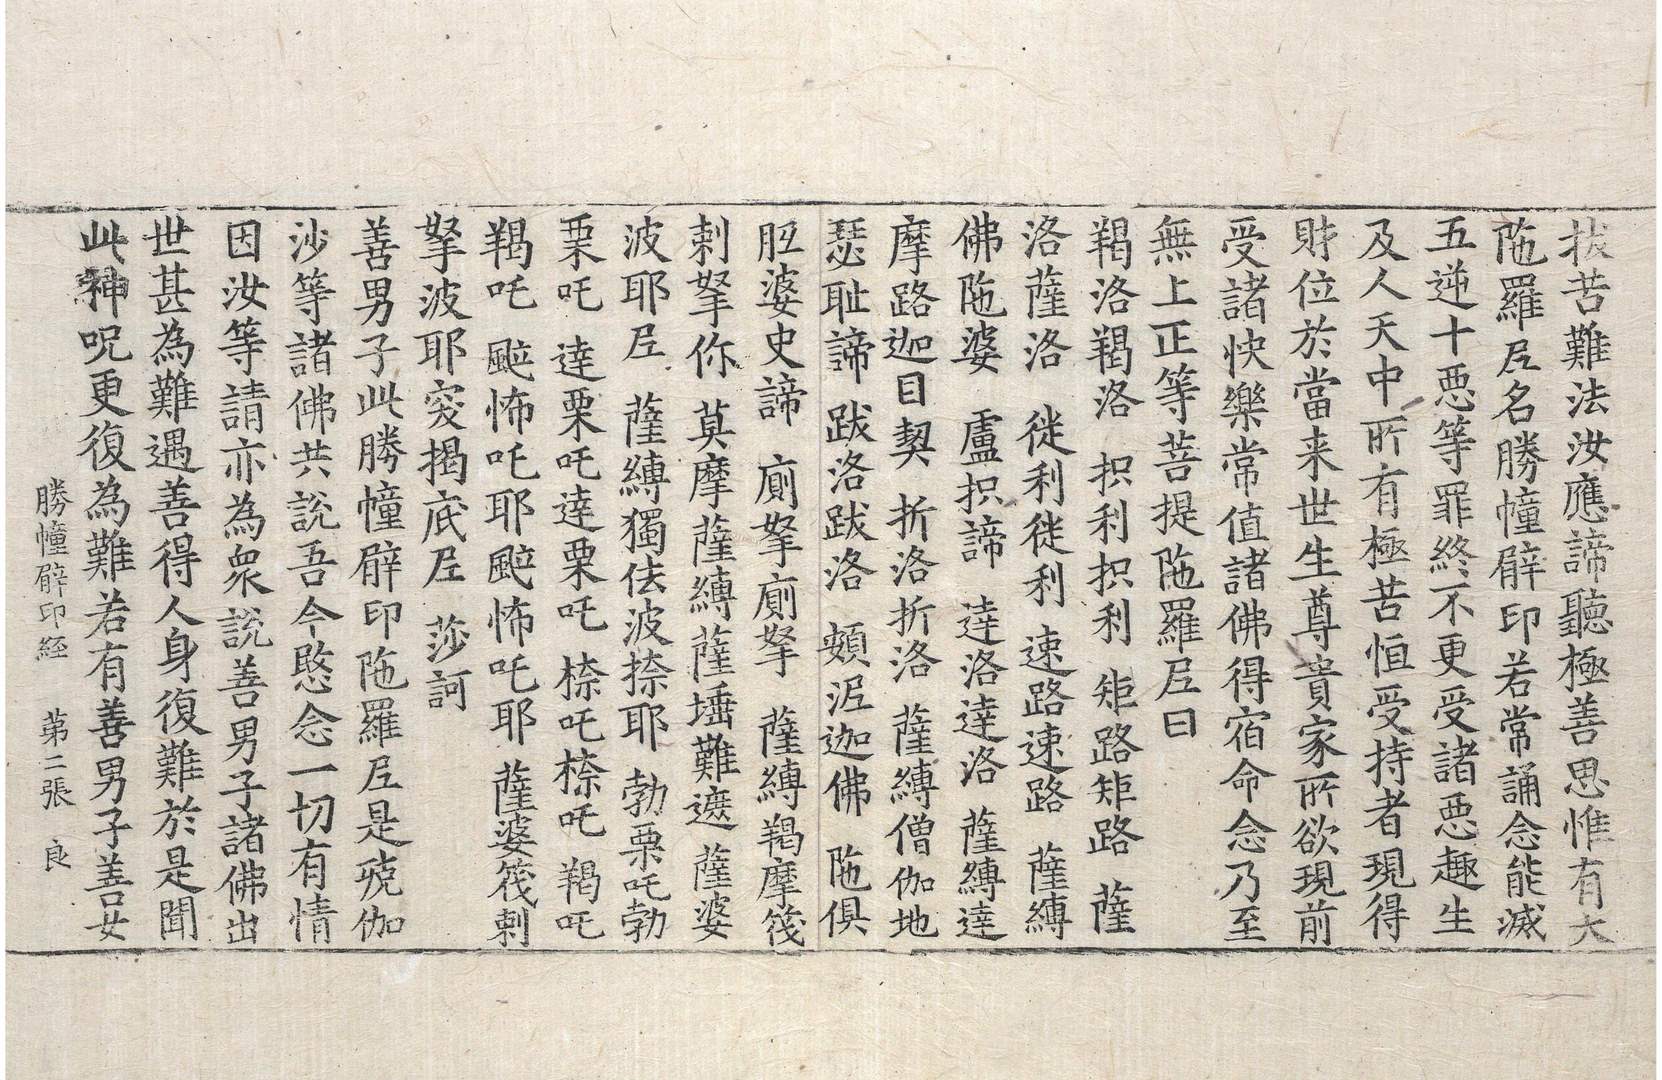 拔苦難法汝應諦聽極善思惟有大
陁羅尼名勝幢臂印若常誦念能滅
五逆十惡等罪終不更受諸惡趣生
及人天中所有極苦恒受持者現得
財位於當来世生尊貴家所欲現前
受諸快樂常值諸佛得宿命念乃至
無上正等菩提陁羅尼曰
羯洛羯洛 抧利抧利 矩路矩路 薩
洛薩洛 徙利徙利 速路速路 薩縛
佛陁婆 盧抧諦 達洛達洛 薩縛達
摩路迦目契 折洛折洛 薩縛僧伽地
瑟耻諦 跋洛跋洛 頞泥迦佛 陁俱
胝婆史諦 廁拏廁拏 薩縛羯摩筏
剌拏你 莫摩薩縛薩埵難遮 薩婆
波耶尼 薩縛獨佉波捺耶 勃栗吒勃
栗吒 達栗吒達栗吒 㮈吒㮈吒 羯吒
羯吒 颭怖吒耶颭怖吒耶 薩婆筏剌
拏波耶突揭底尼 莎訶
善男子此勝幢臂印陁羅尼是殑伽
沙等諸佛共說吾今愍念一切有情
因汝等請亦為衆說善男子諸佛出
世甚為難遇善得人身復難於是聞
此神呪更復為難若有善男子善女
勝幢臂印經 第二張 良